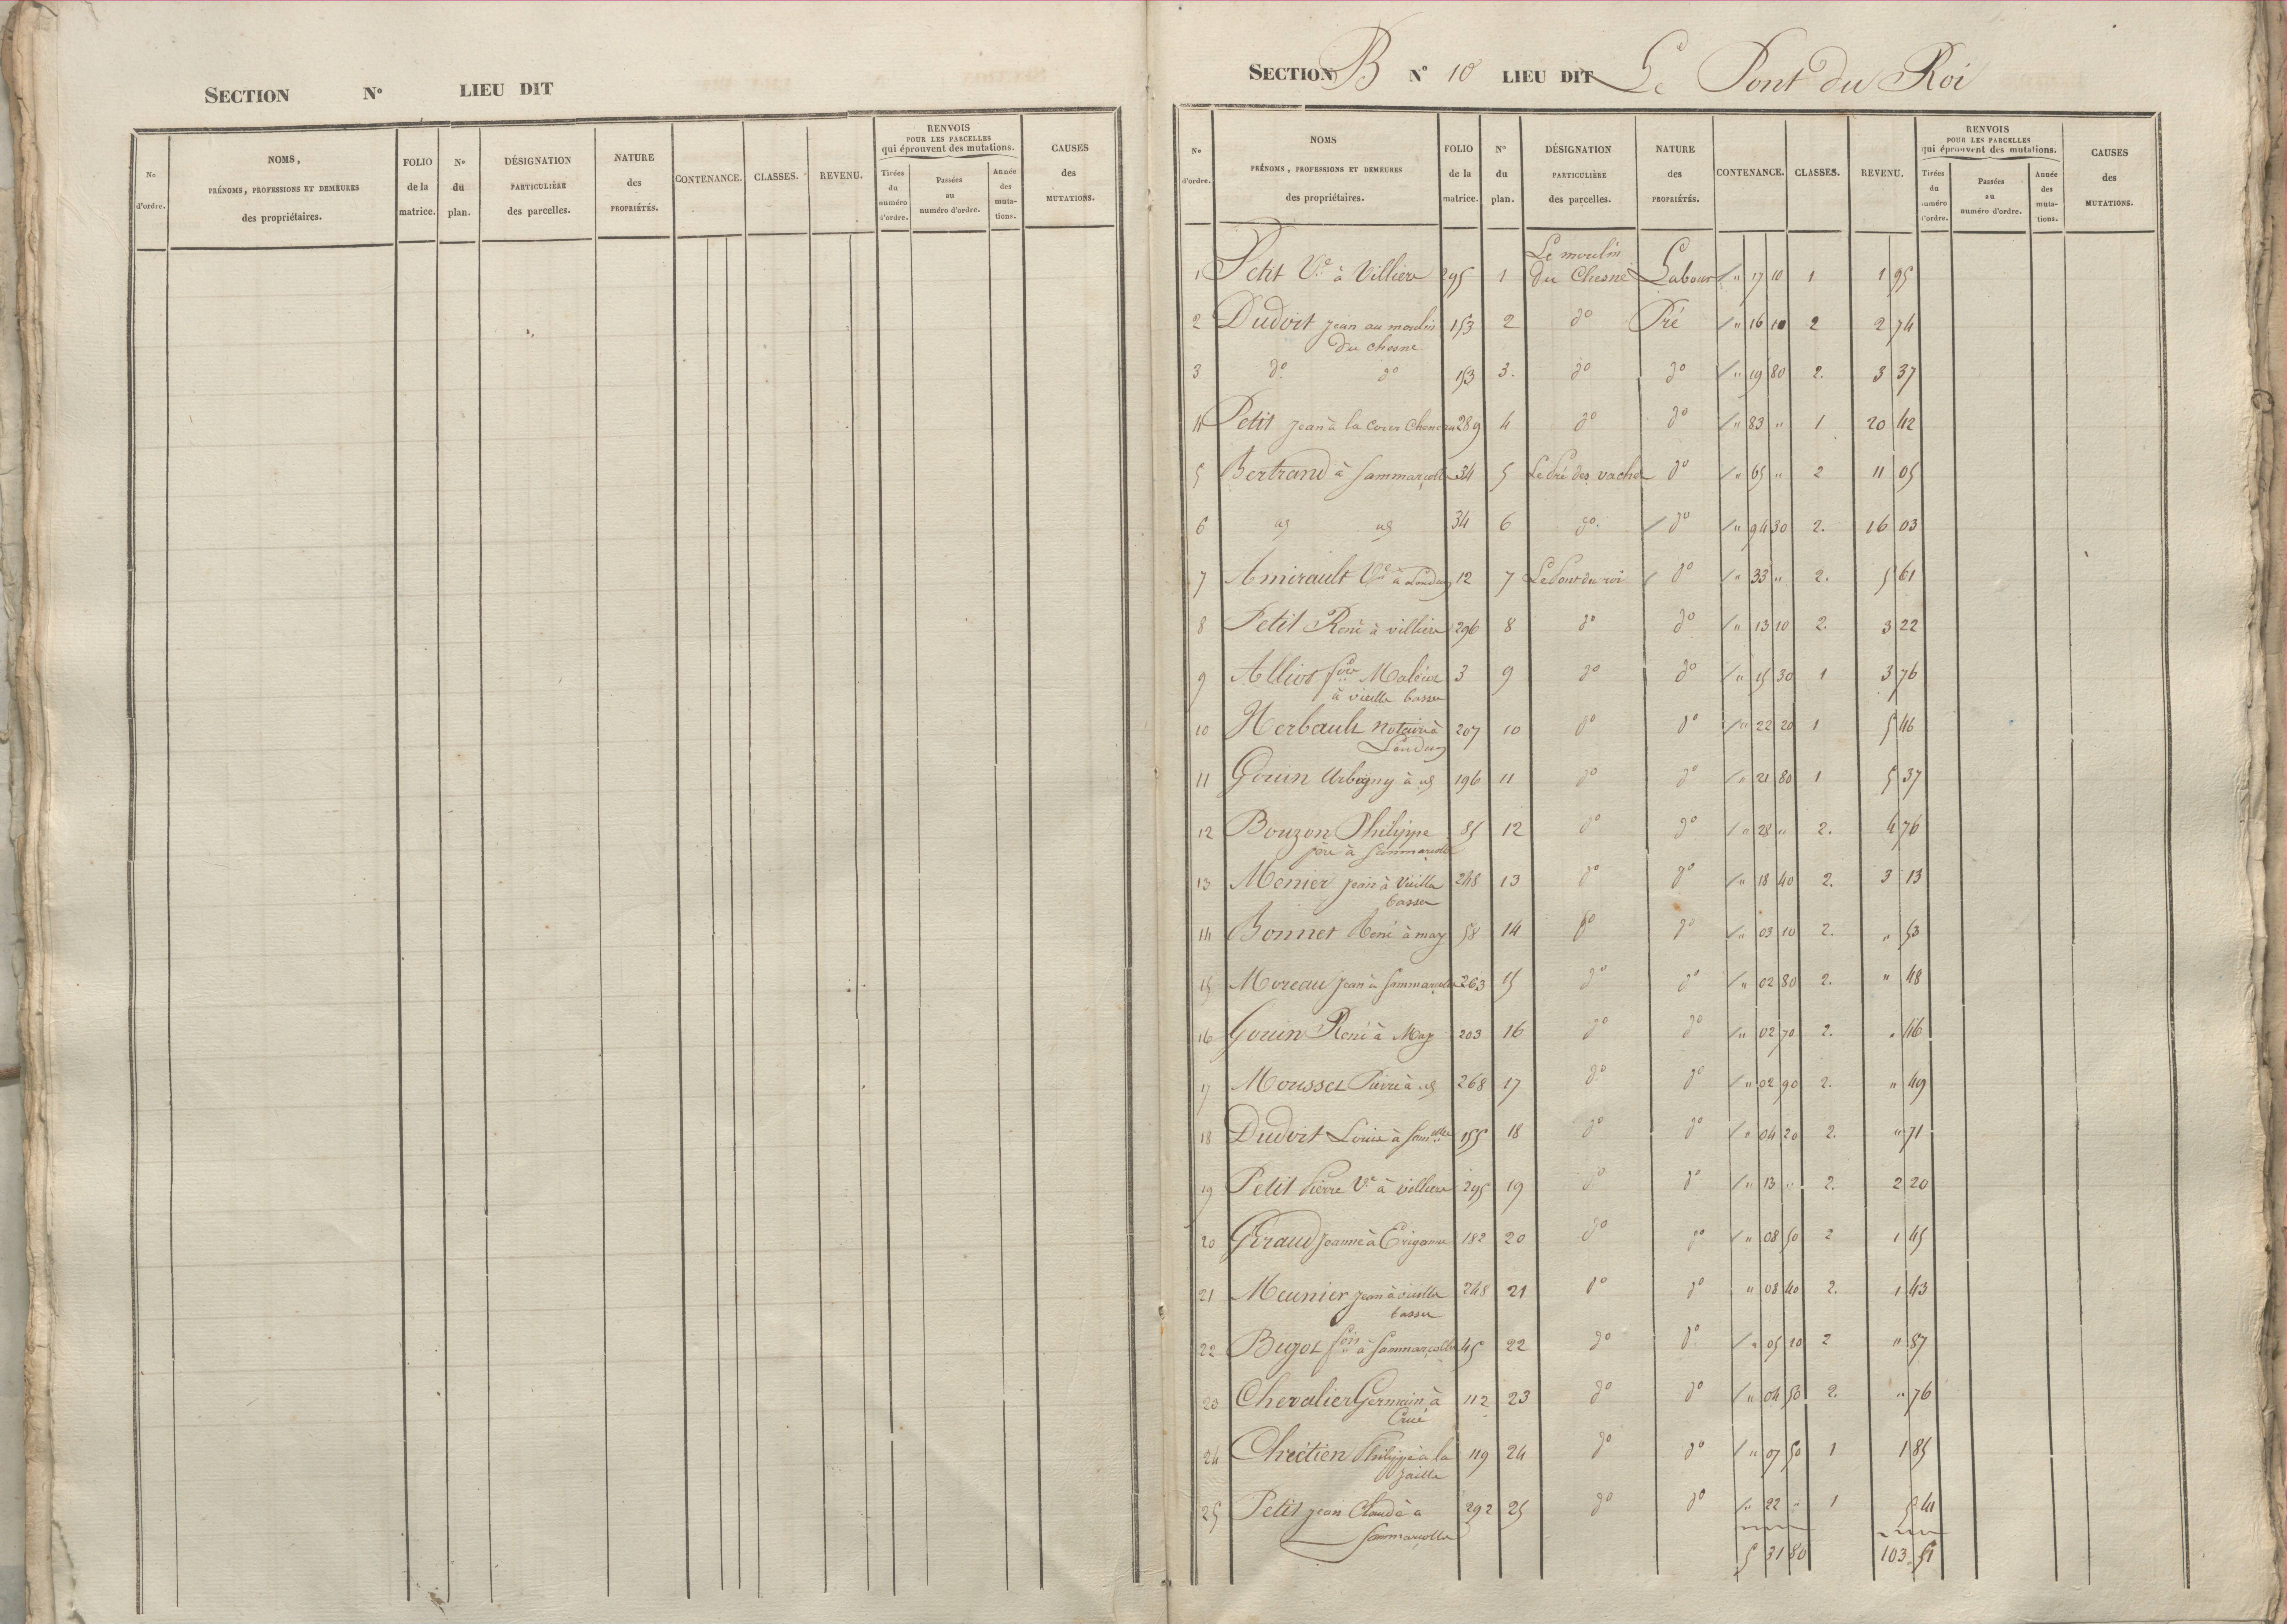 SECTION N° LIEU DIT
No d'ordre.
NOMS, PRÉNOMS, PROFESSIONS ET DEMEURES des propriétaires.
FOLIO de la matrice.
No du plan.
DÉSIGNATION PARTICULIÈRE des parcelles.
NATURE des PROPRIÉTÉS.
CONTENANCE.
CLASSES.
REVENU.
RENVOIS POUR LES PARCELLES qui éprouvent des mutations.
Tirées du numéro d'ordre.
Passées au numéro d'ordre.
Année des mutations.
CAUSES des MUTATIONS.
SECTION B N° 10 LIEU DIT Le Pont du Roi
No d'ordre.
NOMS PRÉNOMS, PROFESSIONS ET DEMEURES des propriétaires.
FOLIO de la matrice.
N° du plan.
DÉSIGNATION PARTICULIÈRE des parcelles.
NATURE des PROPRIÉTÉS.
CONTENANCE.
CLASSES.
REVENU.
RENVOIS POUR LES PARCELLES qui éprouvent des mutations.
Tirées du numéro d'ordre.
Passées au numéro d'ordre.
Année des mutations.
CAUSES des MUTATIONS.
Le moulin
1 Petit Ve à Villiers 295 1 du Chesne Labour " 17 10 1 1 95
2 Dudoit jean au moulin 153 2 do Pré " 16 10 2 2 74
du chesne
3 do do 153 3. do do " 19 80 2. 3 37
4 Petit jean à la Cour 289 4 do do " 83 " 1 20 42
5 Bertrand à Sammarçolle 34 5 Le Pré des vaches do " 65 " 2 11 05
6 34 6 do do " 94 30 2. 16 03
7 Amirault Ve à Loudun 12 7 Le Pont du roi do " 33 " 2. 5 61
8 Petit René à villiers 296 8 do do " 13 10 2. 3 22
9 Alliot 3 9 do do " 15 30 1 3 76
à vieille basse
10 Herbault Notaire à 207 10 do do " 22 20 1 5 46
Loudun
11 Gouin Urbagny à 196 11 do do " 21 80 1 5 37
12 Bouzon Philippe 85 12 do do " 28 " 2. 4 76
père à Sammarcolle
13 Menier jean à Vieille 248 13 do do " 18 40 2. 3 13
basse
14 Bonnet René à may 58 14 do do " 03 10 2. " 53
15 Moreau jean à Sammarcolle 263 15 do do " 02 80 2. " 48
16 Gouin René à May 203 16 do do " 02 70 2. " 46
17 Mousset Pierre à 268 17 do do " 02 90 2. " 49
18 Dudoit Louis à Samolle 155 18 do do " 04 20 2. " 71
19 Petit Pierre Ve à villiers 295 19 do do " 13 " 2. 2 20
20 Giraud Jeanne à 182 20 do do " 08 50 2 1 45
21 Meunier jean à vieille 248 21 do do " 08 40 2. 1 43
basse
22 Bigot fois à Sammarçolle 45 22 do do " 05 10 2 " 87
23 Chevalier Germain à 112 23 do do " 04 50 2. " 76
Crué
24 Chrétien Philippe à la 119 24 do do " 07 50 1 1 85
jaille
25 Petit jean Claude à 292 25 do do " 22 " 1 5 41
Sammarçolle
5 31 80 103 51